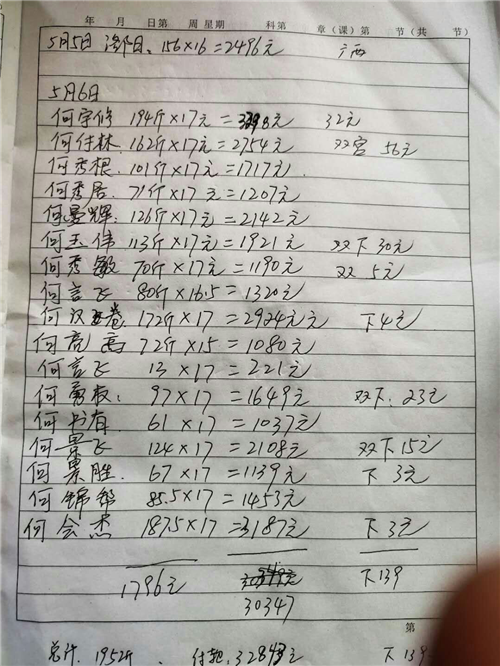 年 月 日第 周 星期 科第 章(课)第 节(共 节)
5月5日 156×16=2496元 广西
5月6日
何宇修 194斤×17元=3298元 32元
何仕林 162斤×17元=2754元 双宫 56元
何秀根 101斤×17元=1717元.
何秀居 71斤×17元=1207元
何景辉: 126斤×17元=2142元
何玉伟 113斤×17元=1921元 双下30元
何秀敏 70斤×17元=1190元 双 5元
何言飞 80斤×16.5=1320元
何汉卷 172斤×17=2924元 下4元
何亮高 72斤×15=1080元
何言飞 13×17=221元
何 板: 97×17=1649元 双下:23元
何书有. 61×17=1037元
何景飞 124×17=2108元 双下15元
何景胜. 67×17=1139元 下3元
何锦帮 85.5×17=1453元
何会杰 187.5×17=3187元 下3元
1796元 下139
30347
第
总计. 1952斤. 付款:32843元 下139